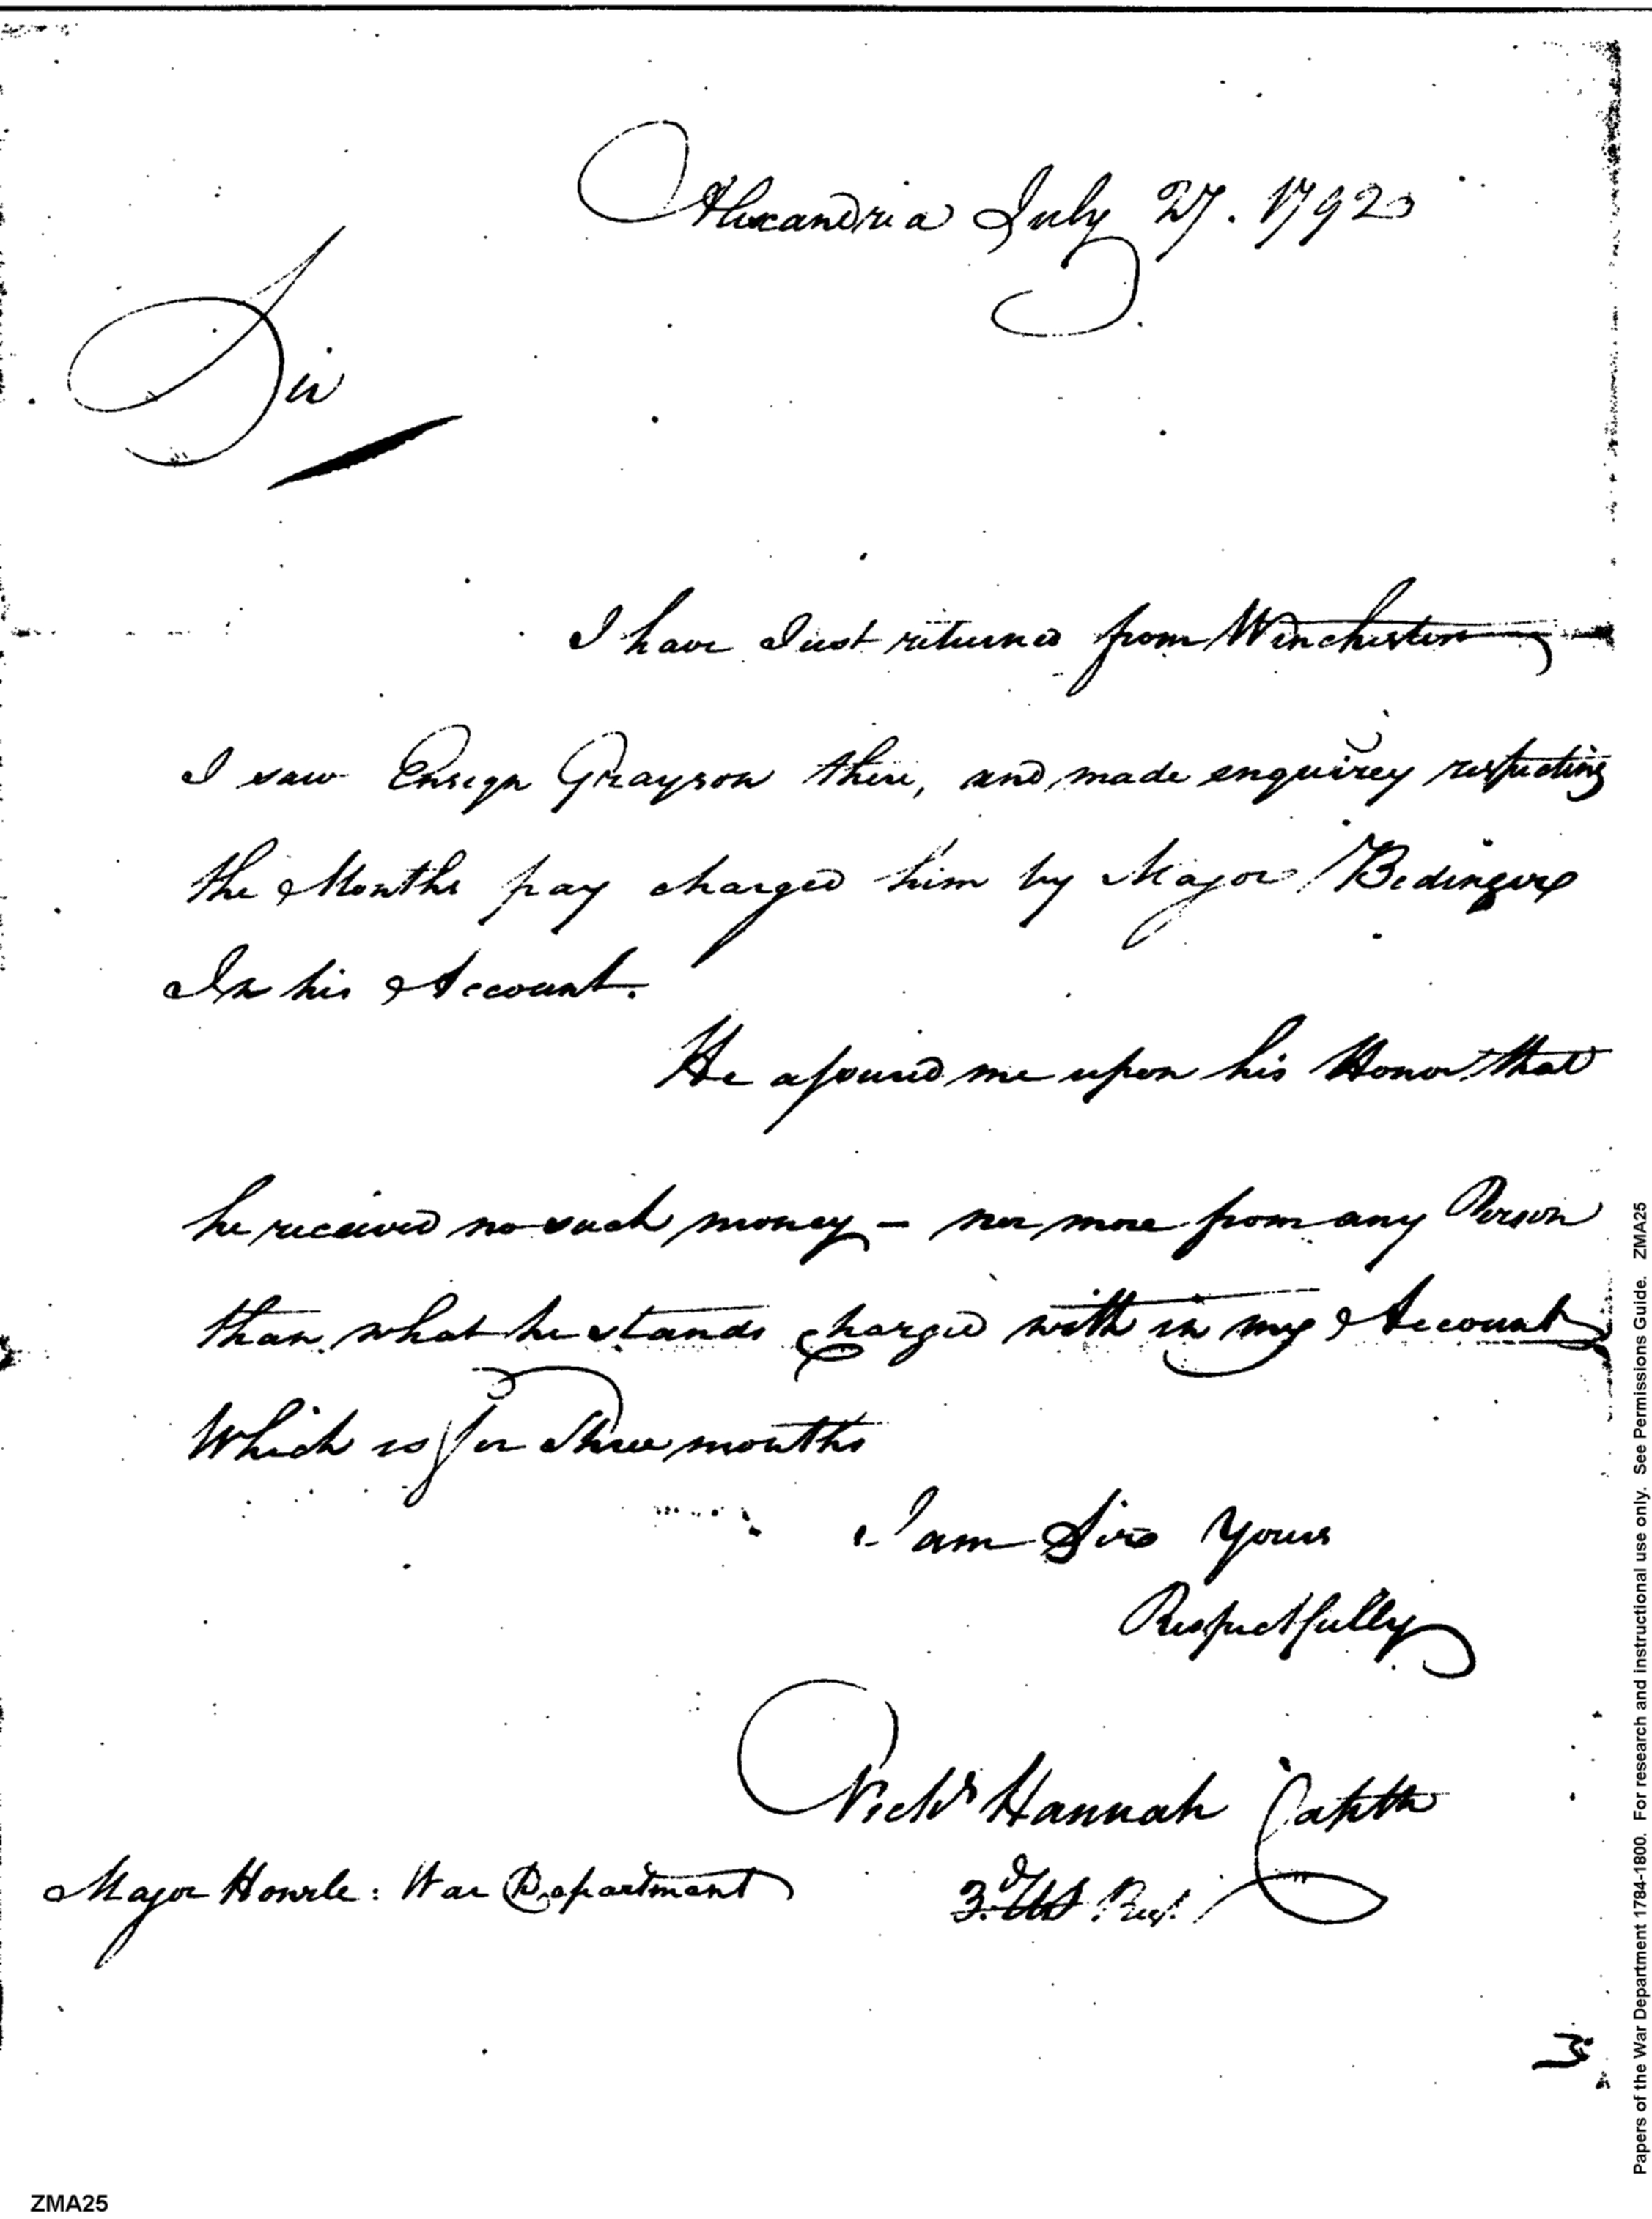 Alexandria July 27. 1792
Sir
I have Just returned from Winchester
I saw Ensign Grayson there, and made enquirey respecting
the Months pay charged him by Major Bedinger
In his Account.
He assured me upon his Honor that
he received no such money – nor more from any Person
than what he stands charged with in my Account
Which is for Three months
I am Sir Yours
Respectfully
Nichs Hannah Captn
3d US Regt
Major Howle: War Department
ZMA25
Papers of the War Department 1784-1800. For research and instructional use only. See Permissions Guide. ZMA25